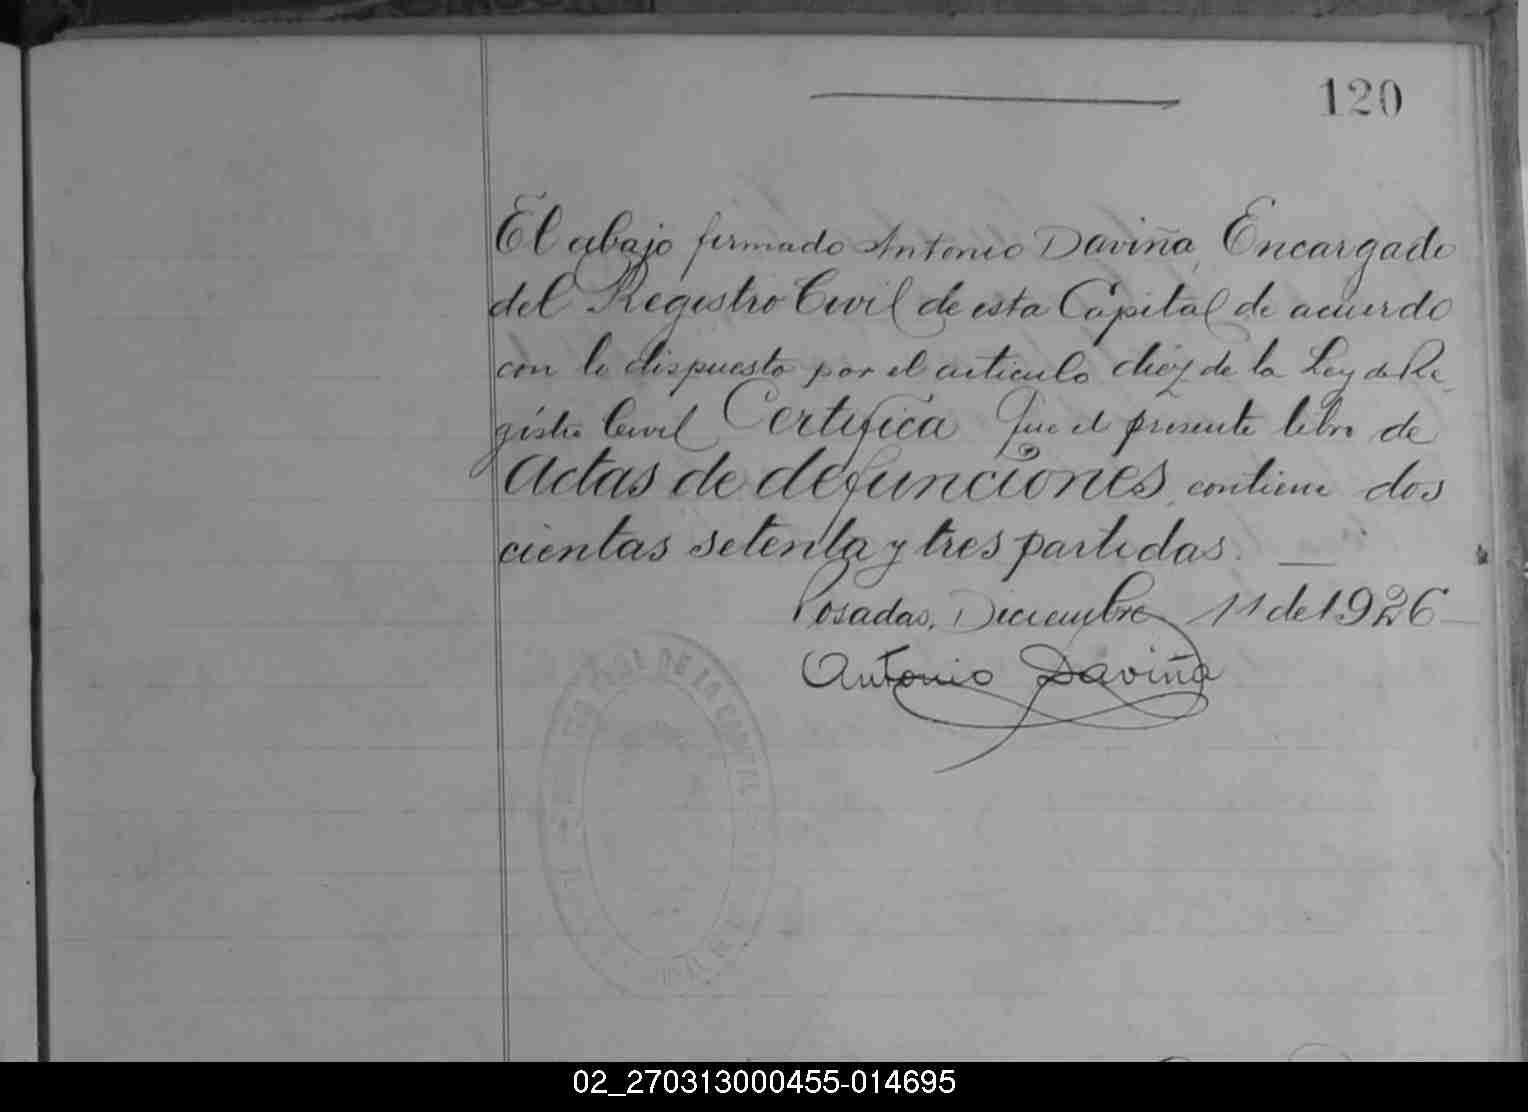 120
El abajo firmado Antonio Daviña, Encargado
del Registro Civil de esta Capital de acuerdo
con lo dispuesto por el articulo diez de la Ley de Re-
gistro Civil Certifica Que el presente libro de
Actas de defunciones, contiene dos
cientas setenta y tres partidas.
Posadas, Diciembre 11 de 1926
Antonio Daviña
DE LA CAPITAL
02_270313000455-014695